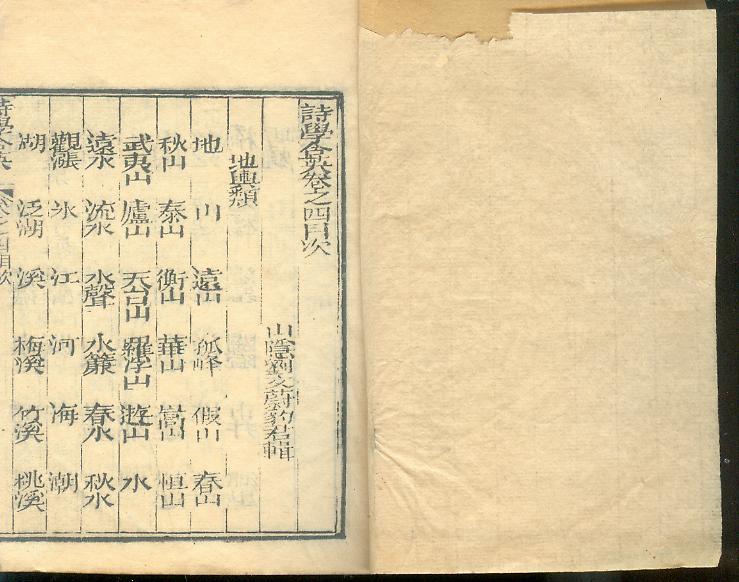 詩學含英卷之四目次
山陰劉文蔚豹君輯
地輿類
地 山 遠山 孤峰 假山 春山
秋山 泰山 衡山 華山 嵩山 恒山
武夷山 廬山 天台山 羅浮山 遊山 水
遠水 流水 水聲 水簾 春水 秋水
觀漲 氷 江 河 海 潮
湖 泛湖 溪 梅溪 竹溪 桃溪
詩學含英 卷之四目次